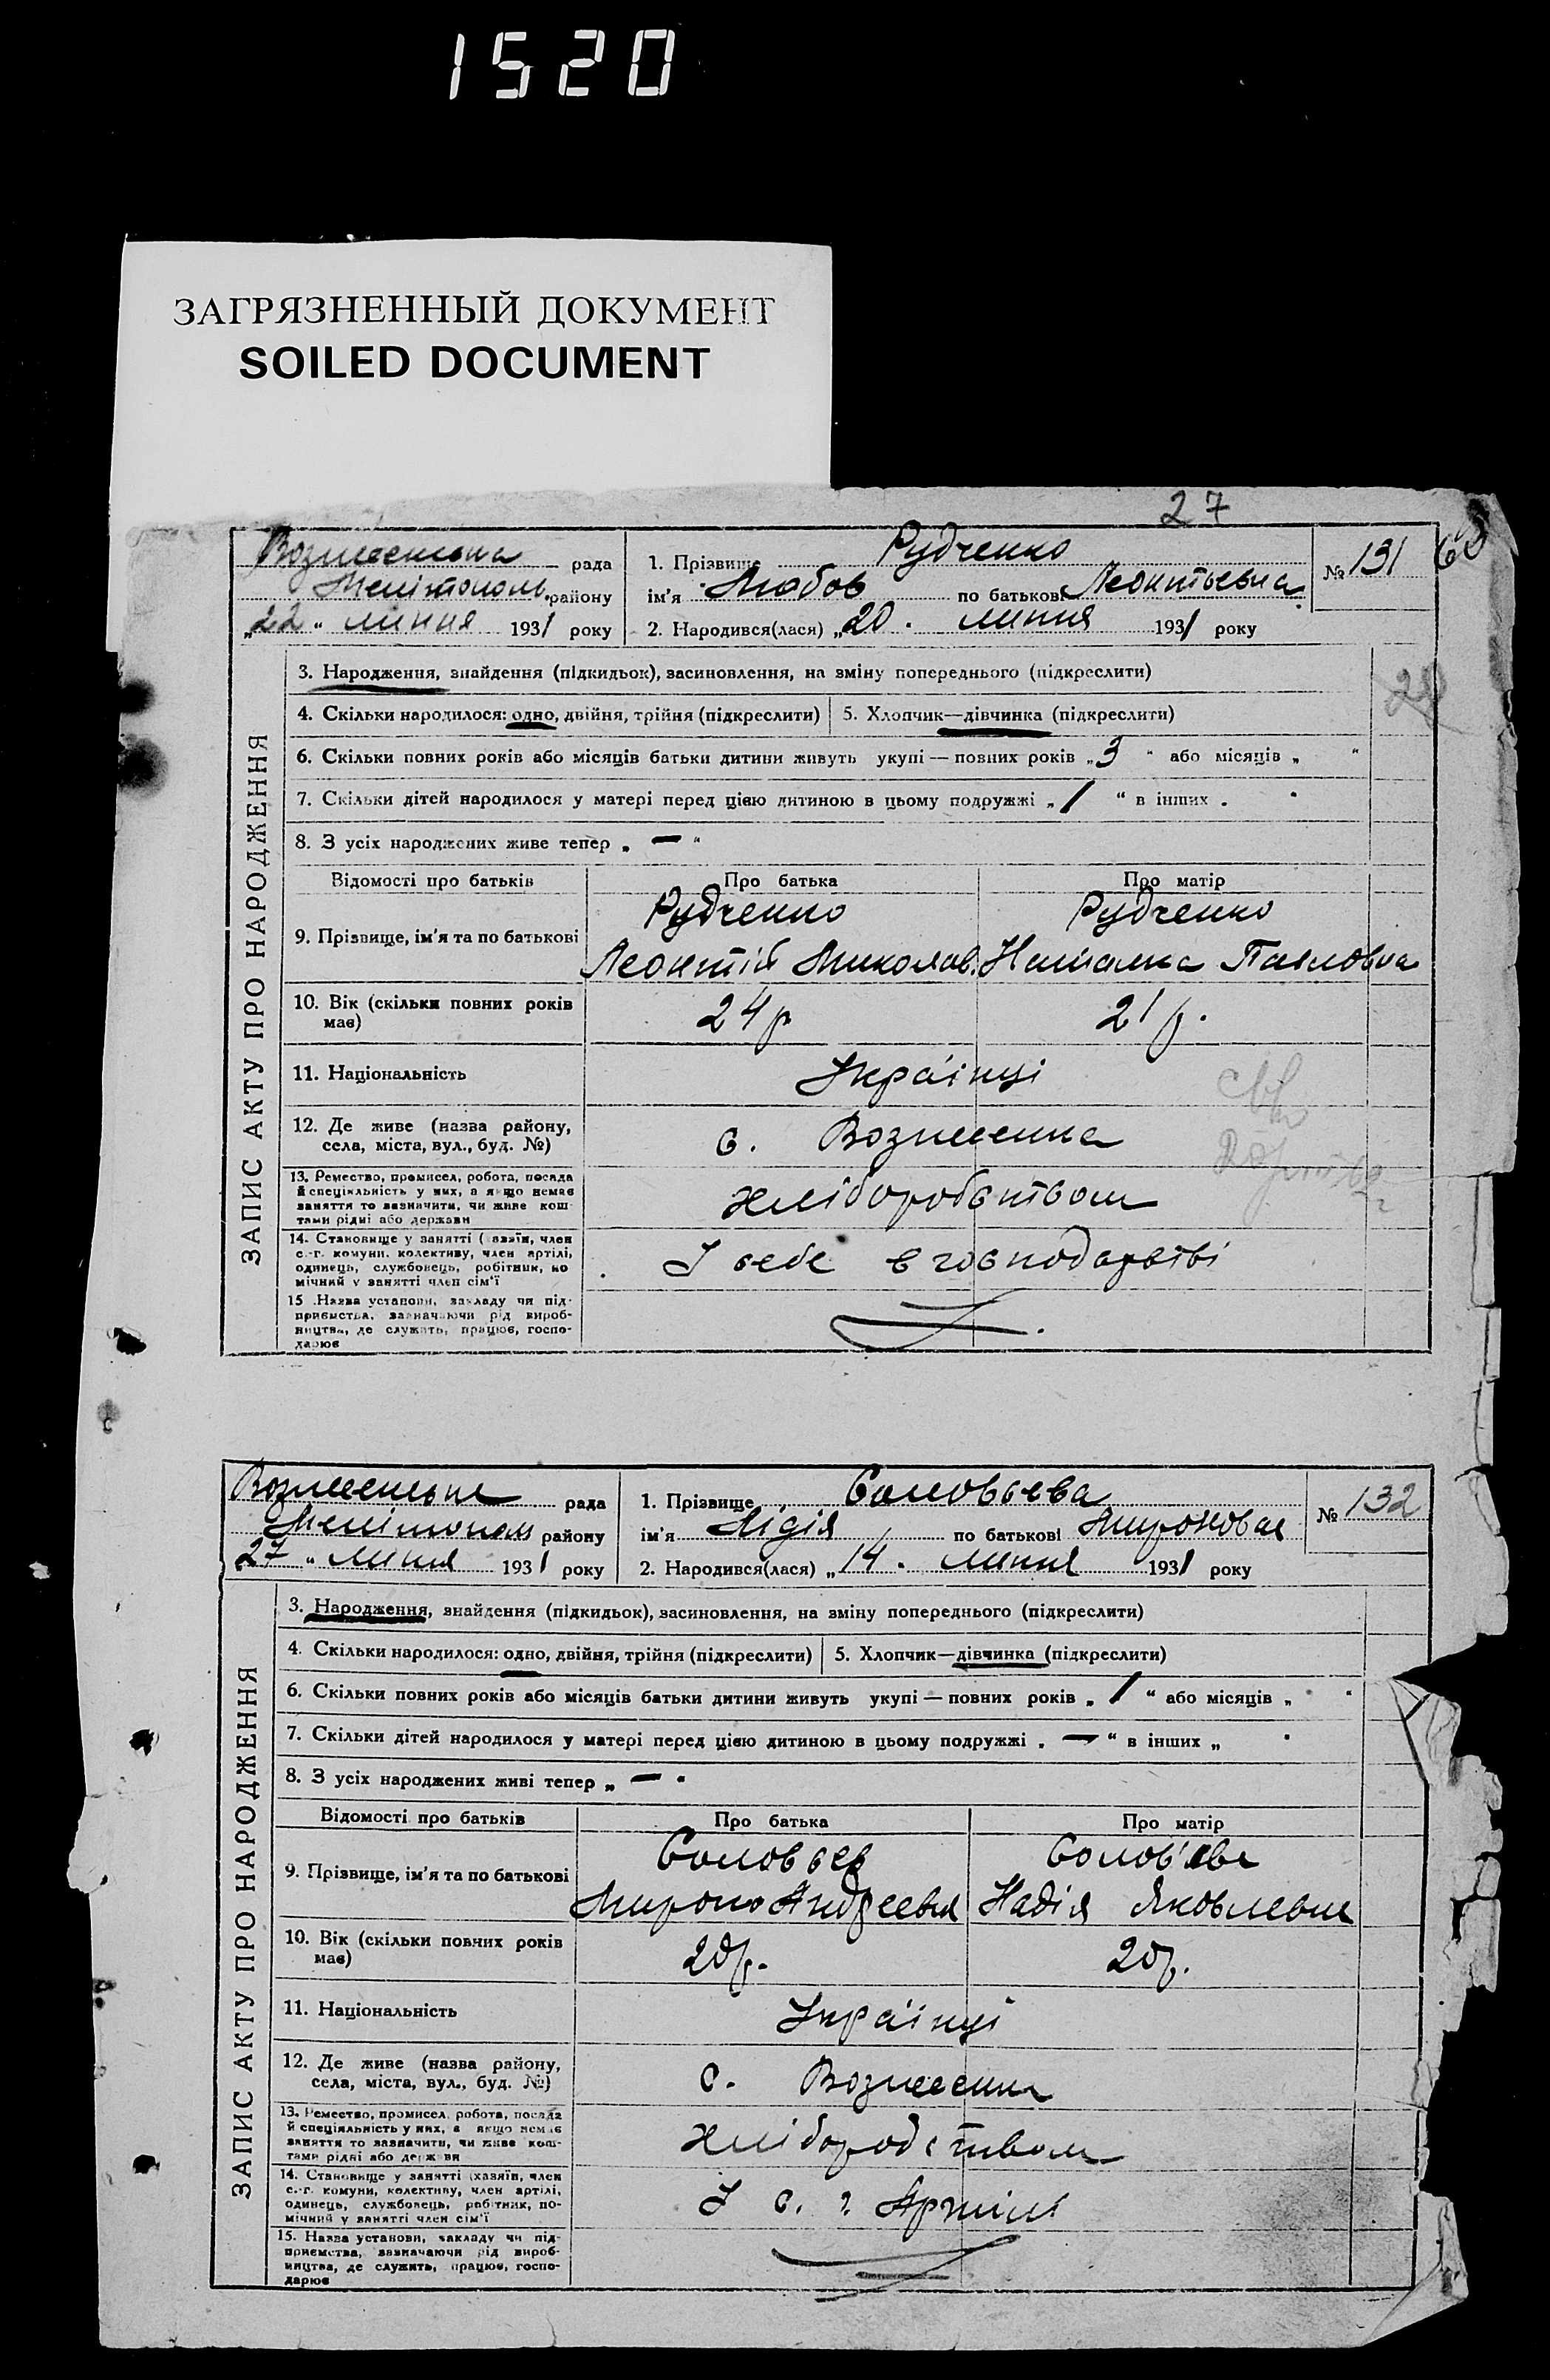 1520
ЗАГРЯЗНЕННЫЙ ДОКУМЕНТ
SOILED DOCUMENT
27
68
Вознесенська рада
Мелітополь. району
„22" липня 1931 року
1. Прізвище Рудченко
ім'я Любов по батькові Леонтьевна
2. Народився(лася) „20. липня 1931 року
№ 131
ЗАПИС АКТУ ПРО НАРОДЖЕННЯ
3. Народження, знайдення (підкидьок), засиновлення, на зміну попереднього (підкреслити)
4. Скільки народилося: одно, двійня, трійня (підкреслити) 5. Хлопчик—дівчинка (підкреслити)
6. Скільки повних років або місяців батьки дитини живуть укупі — повних років „3 " або місяців „ "
7. Скільки дітей народилося у матері перед цією дитиною в цьому подружжі „ 1 " в інших .
8. З усіх народжених живе тепер „ — "
Відомості про батьків Про батька Про матір
9. Прізвище, ім'я та по батькові
Рудченко Рудченко
Леонтій Миколов. Наталка Павловна
10. Вік (скільки повних років має) 24 р 21 р.
11. Національність Українці
12. Де живе (назва району, села, міста, вул., буд. №) с. Вознесенка
13. Ремество, промисел, робота, посада
й спеціяльність у них, а якщо немає
заняття то зазначити, чи живе кош-
тами рідні або держави
хліборобством
14. Становище у занятті (хазяїн, член
с.-г. комуни, колективу, член артілі,
одинець, службовець, робітник, по
мічний у занятті член сім'ї
У себе в господарстві
15 .Назва установи, закладу чи під-
приємства, зазначаючи рід вироб-
ництва, де служить, працює, госпо-
дарює
Вознесенська рада
Мелітополь району
27 " липня 1931 року
1. Прізвище Соловьева
ім'я Лідія по батькові Мироновна
2. Народився(лася) „14. липня 1931 року
№ 132
ЗАПИС АКТУ ПРО НАРОДЖЕННЯ
3. Народження, знайдення (підкидьок), засиновлення, на зміну попереднього (підкреслити)
4. Скільки народилося: одно, двійня, трійня (підкреслити) 5. Хлопчик—дівчинка (підкреслити)
6. Скільки повних років або місяців батьки дитини живуть укупі — повних років „ 1 " або місяців „ "
7. Скільки дітей народилося у матері перед цією дитиною в цьому подружжі . — " в інших „
8. З усіх народжених живі тепер „ —
Відомості про батьків Про батька Про матір
9. Прізвище, ім'я та по батькові
Соловьев Солов'ева
Мирон Андреевич Надія Яковлевна
10. Вік (скільки повних років має) 20 р. 20 р.
11. Національність Українці
12. Де живе (назва району, села, міста, вул., буд. №) с. Вознесенка
13. Ремество, промисел, робота, посада
й спеціяльність у них, а якщо немає
заняття то зазначити, чи живе кош-
тами рідні або держави
хліборобством
14. Становище у занятті (хазяїн, член
с.-г. комуни, колективу, член артілі,
одинець, службовець, робітник, по-
мічний у занятті член сім'ї
У с. г. Артілі
15. Назва установи, закладу чи під-
приємства, зазначаючи рід вироб-
ництва, де служить, працює, госпо-
дарює